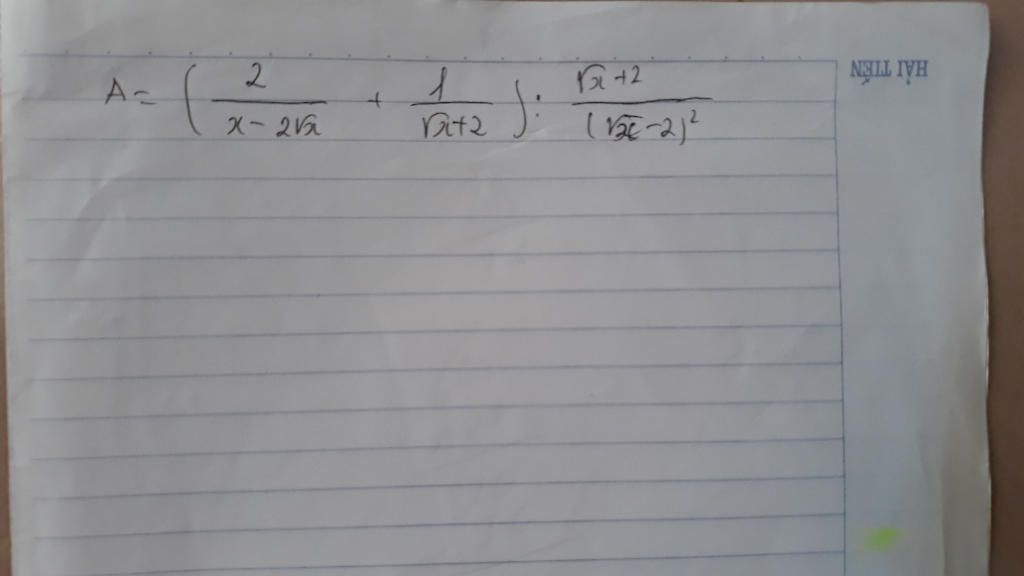 A = ( 2/(x - 2√x) + 1/(√x+2) ) : (√x+2)/(√x-2)²
HẢI TIẾN